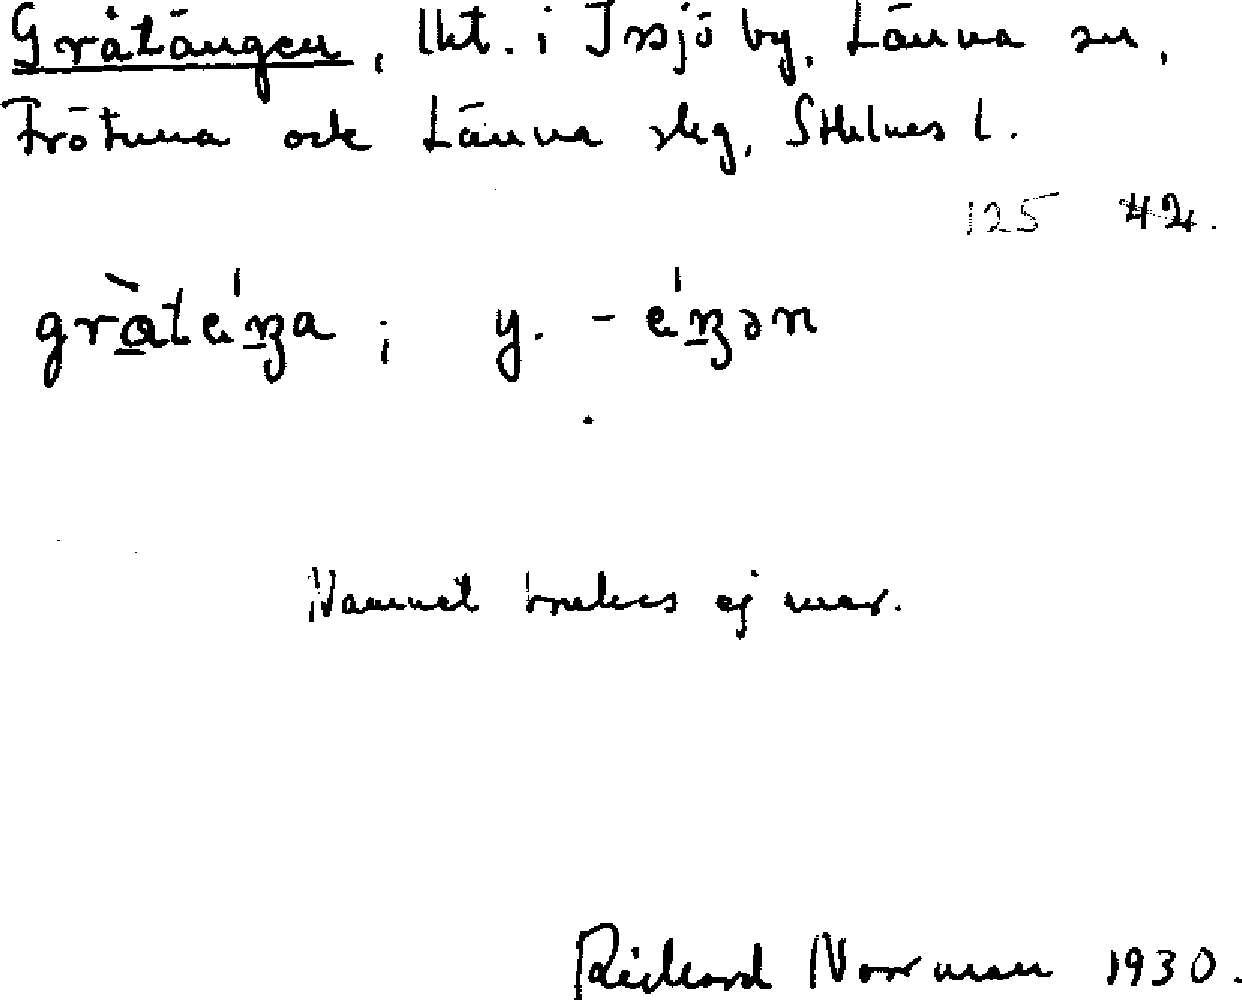 Gråtängen, lht. i Issjö by, Länna sn,
Frötuna och Länna slg, Sthlms l.
125 42.
gràtéŋa ; y. - éŋən
Namnet brukas ej mer.
Rickard Norrman 1930.